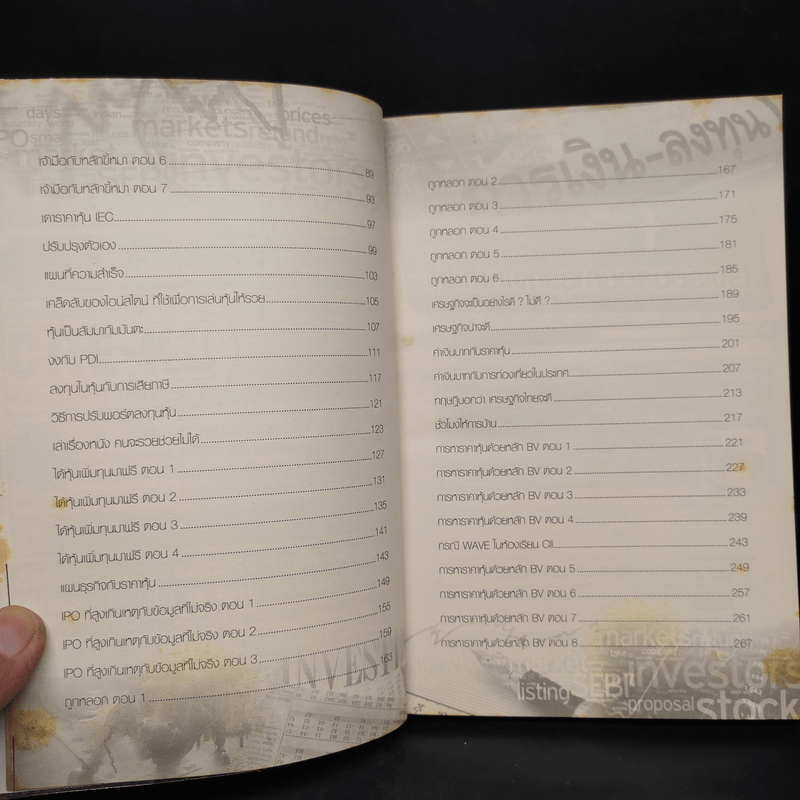 เจ้ามือกับหลักขี้หมา ตอน 6 89
เจ้ามือกับหลักขี้หมา ตอน 7 93
เดาราคาหุ้น IEC 97
ปรับปรุงตัวเอง 99
แผนที่ความสำเร็จ 103
เคล็ดลับของไอน์สไตน์ ที่ใช้เพื่อการเล่นหุ้นให้รวย 105
หุ้นเป็นสัมมากัมมันตะ 107
งงกับ PDI 111
ลงทุนในหุ้นกับการเสียภาษี 117
วิธีการปรับพอร์ตลงทุนหุ้น 121
เล่าเรื่องหนัง คนจะรวยช่วยไม่ได้ 123
ได้หุ้นเพิ่มทุนมาฟรี ตอน 1 127
ได้หุ้นเพิ่มทุนมาฟรี ตอน 2 131
ได้หุ้นเพิ่มทุนมาฟรี ตอน 3 135
ได้หุ้นเพิ่มทุนมาฟรี ตอน 4 141
แผนธุรกิจกับราคาหุ้น 143
IPO ที่สูงเกินเหตุกับข้อมูลที่ไม่จริง ตอน 1 149
IPO ที่สูงเกินเหตุกับข้อมูลที่ไม่จริง ตอน 2 155
IPO ที่สูงเกินเหตุกับข้อมูลที่ไม่จริง ตอน 3 159
ถูกหลอก ตอน 1 163
ถูกหลอก ตอน 2 167
ถูกหลอก ตอน 3 171
ถูกหลอก ตอน 4 175
ถูกหลอก ตอน 5 181
ถูกหลอก ตอน 6 185
เศรษฐกิจจะเป็นอย่างไรดี ? ไม่ดี ? 189
เศรษฐกิจน่าจะดี 195
ค่าเงินบาทกับราคาหุ้น 201
ค่าเงินบาทกับการท่องเที่ยวในประเทศ 207
ทฤษฎีบอกว่า เศรษฐกิจไทยจะดี 213
ชั่วโมงให้การบ้าน 217
การหาราคาหุ้นด้วยหลัก BV ตอน 1 221
การหาราคาหุ้นด้วยหลัก BV ตอน 2 227
การหาราคาหุ้นด้วยหลัก BV ตอน 3 233
การหาราคาหุ้นด้วยหลัก BV ตอน 4 239
กรณี WAVE ในห้องเรียน CII 243
การหาราคาหุ้นด้วยหลัก BV ตอน 5 249
การหาราคาหุ้นด้วยหลัก BV ตอน 6 257
การหาราคาหุ้นด้วยหลัก BV ตอน 7 261
การหาราคาหุ้นด้วยหลัก BV ตอน 8 267
days prices
markets
company
investors
markets
investors
listing SEBI
proposal stock